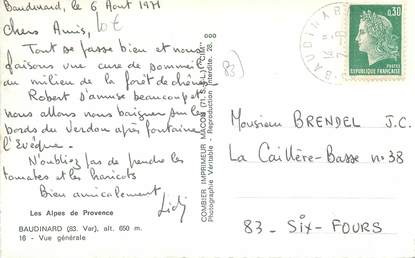 Baudinard, le 6 Août 1971
Chers Amis,
10€
Tout se passe bien et nous
faisons une cure de sommeil
au milieu de la forêt de chênes
Robert s'amuse beaucoup et
nous allons nous baigner sur les
bords du Verdon après fontaine
l'Evêque.
N'oubliez pas de prendre les
tomates et les haricots
Bien amicalement
Les Alpes de Provence
BAUDINARD (83. Var), alt. 650 m.
16 - Vue générale
COMBIER IMPRIMEUR MACON (71. S.-&-L.) "CIM"
Photographie Véritable - Reproduction Interdite.
83)
BAUDINA
0,30
POSTES
REPUBLIQUE FRANCAISE
Monsieur BRENDEL J.C.
La Caillère-Basse n° 38
83 - SIX-FOURS